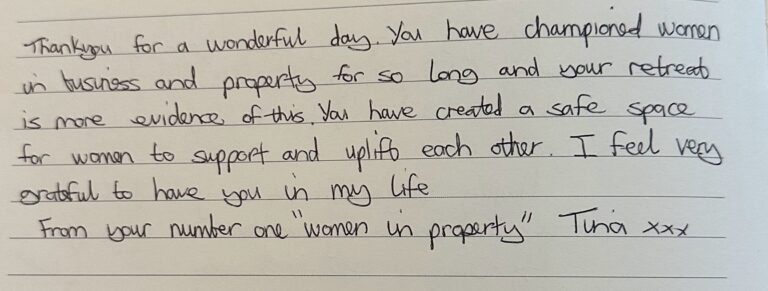 Thankyou for a wonderful day. You have championed women
in business and property for so long and your retreat
is more evidence of this. You have created a safe space
for women to support and uplift each other. I feel very
grateful to have you in my life
From your number one "women in property" Tina xxx